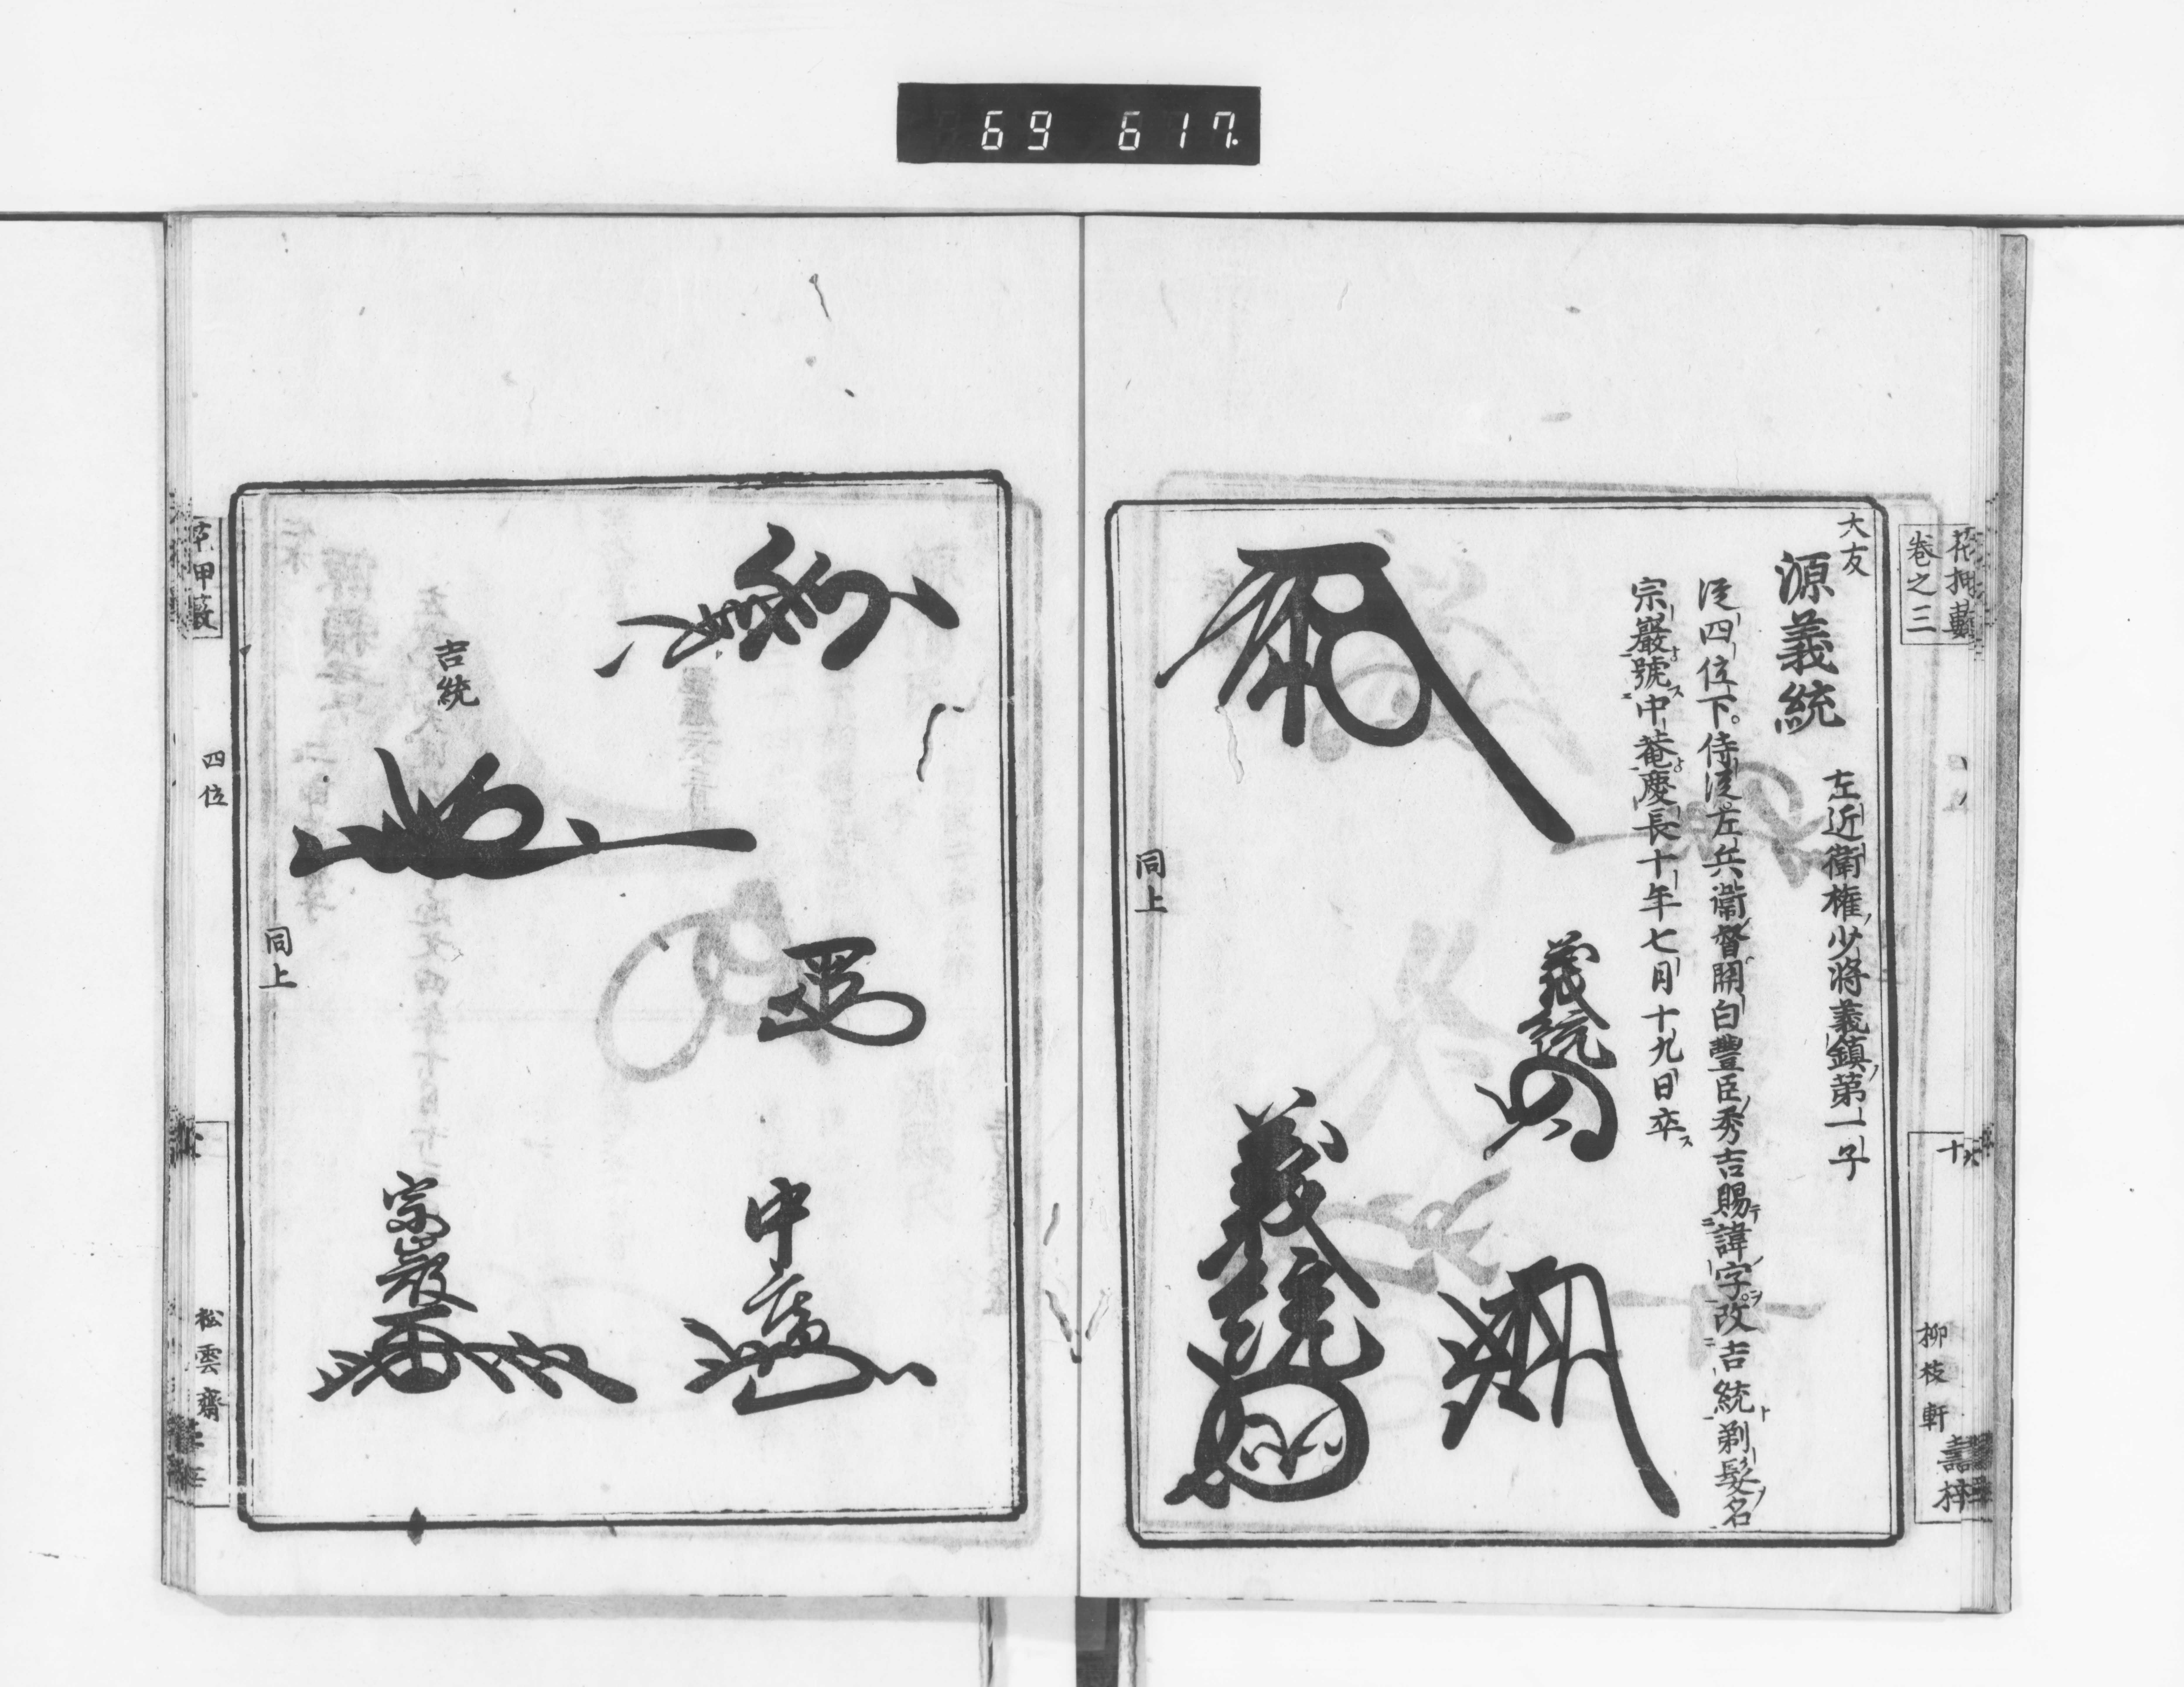 69 617.
花押藪
巻之三
柳枝軒
壽梓
大友
源義統
左近衛権ノ少将義鎮ノ第一子
従四位下。侍従左兵衛督関白豊臣秀吉賜テ諱ノ字ヲ改吉統ト剃髪ノ名
宗巌号ス中菴慶長十年七月十九日卒ス
義統
義統
同上
吉統
中庵
宗巌
同上
四位
松雲齋